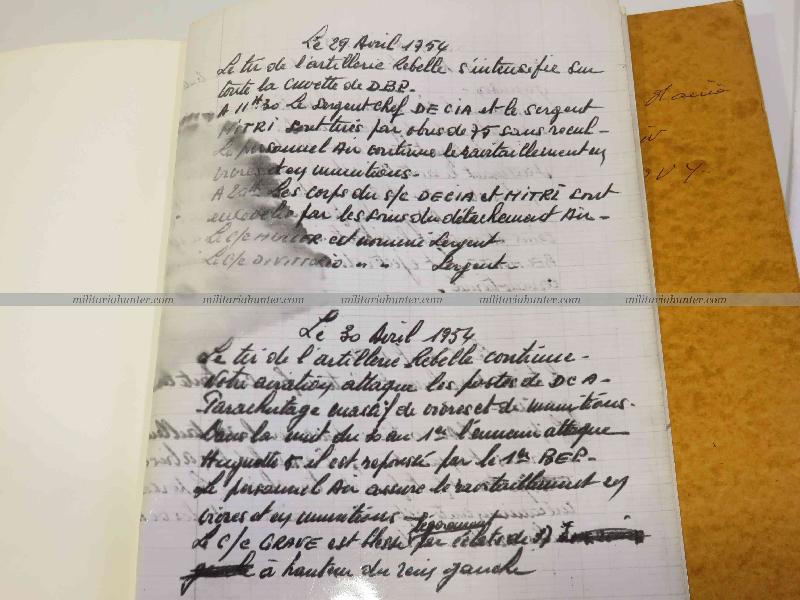 Le 29 Avril 1954
Le tir de l'artillerie Rebelle s'intensifie sur
toute la cuvette de D.B.P.-
A 11H30 Le Sergent chef DECIA et le sergent
MITRI sont tués par obus de 75 sans recul-
Le personnel Air continue le ravitaillement en
vivres et en munitions.-
A 20H Les corps du s/c DECIA et MITRI sont
ensevelis par les soins du détachement Air-
Le C/c MULLOR est nommé Sergent
Le C/c DI VITTORIO " " Sergent-
militariahunter.com militariahunter.com militariahunter.com militariahunter.com militariahunter.com militariahunter.com
Le 30 Avril 1954
Le tir de l'artillerie Rebelle continue-
Notre aviation attaque les postes de DCA-
Parachutage massif de vivres et de munitions.
Dans la nuit du 30 au 1er l'ennemi attaque
Huguette 5 il est repoussé par le 1er BEP.-
Le personnel Air assure le ravitaillement en
vivres et en munitions
légèrement
Le C/c GRAVE est blessé par éclats de 37
à hauteur du rein gauche